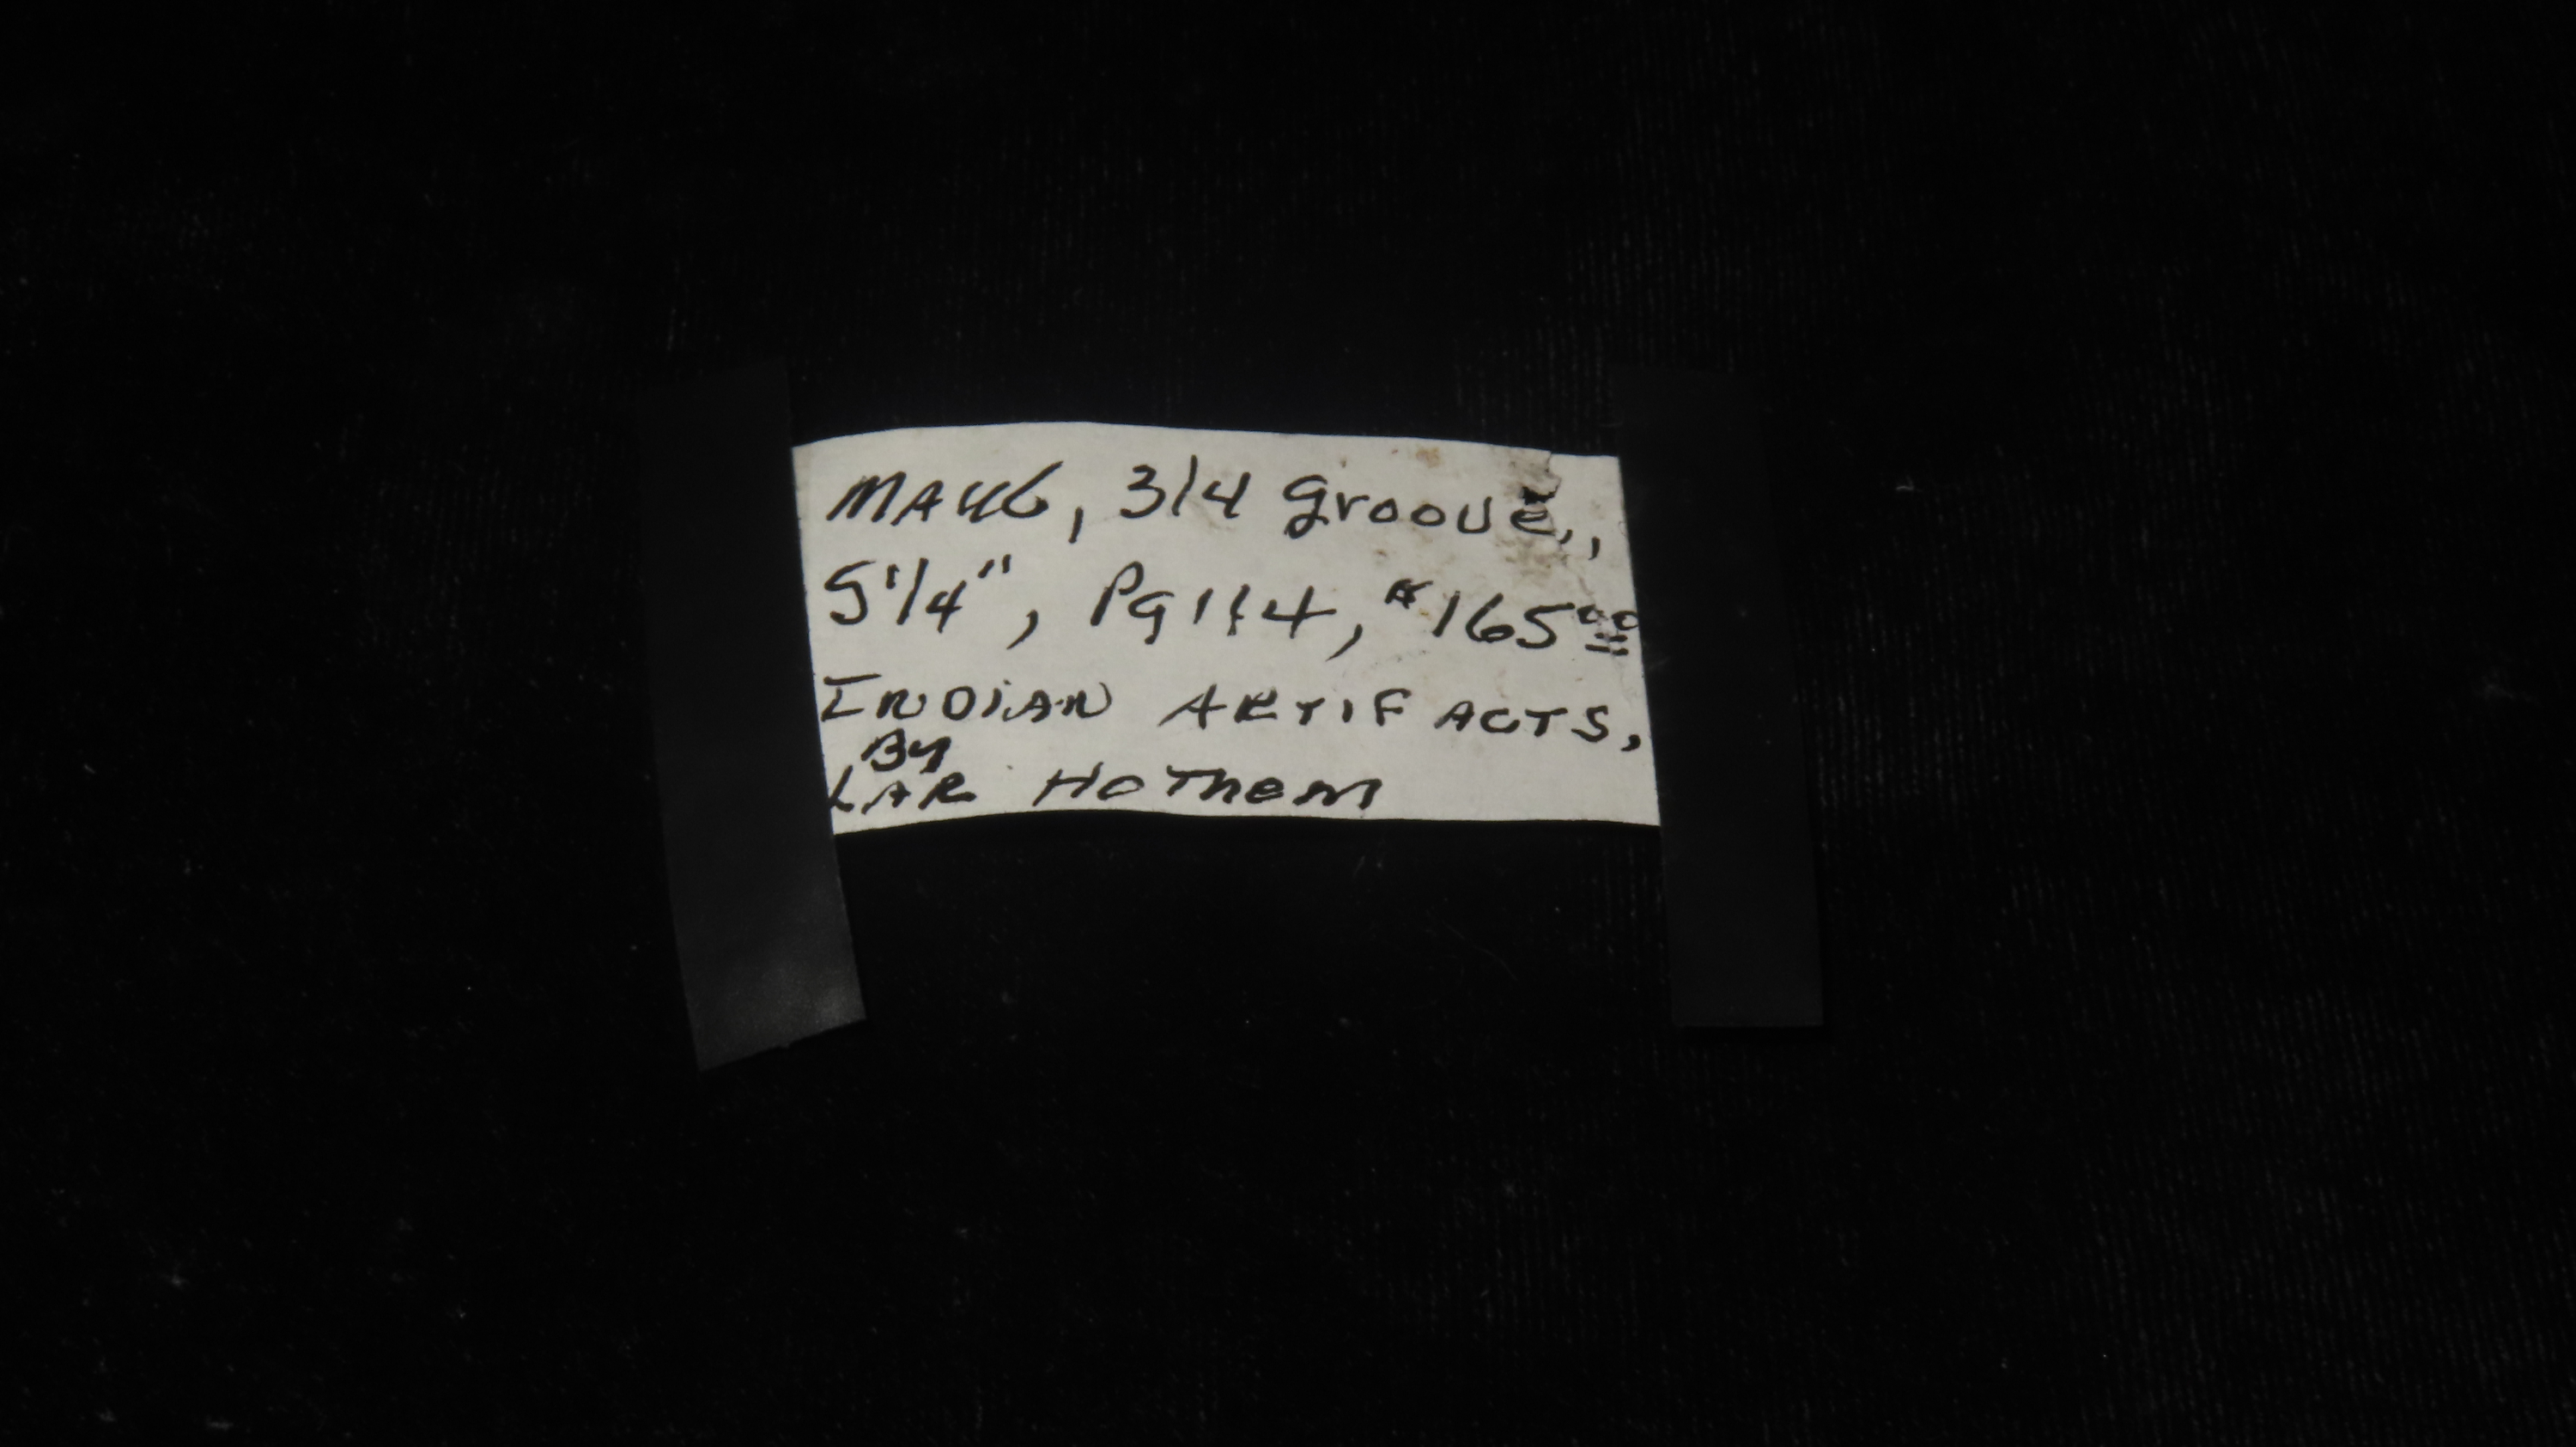 MAUL, 3/4 groove,,
5 1/4", Pg 114, $165.00
INDIAN ARTIFACTS,
By
LAR HoThem